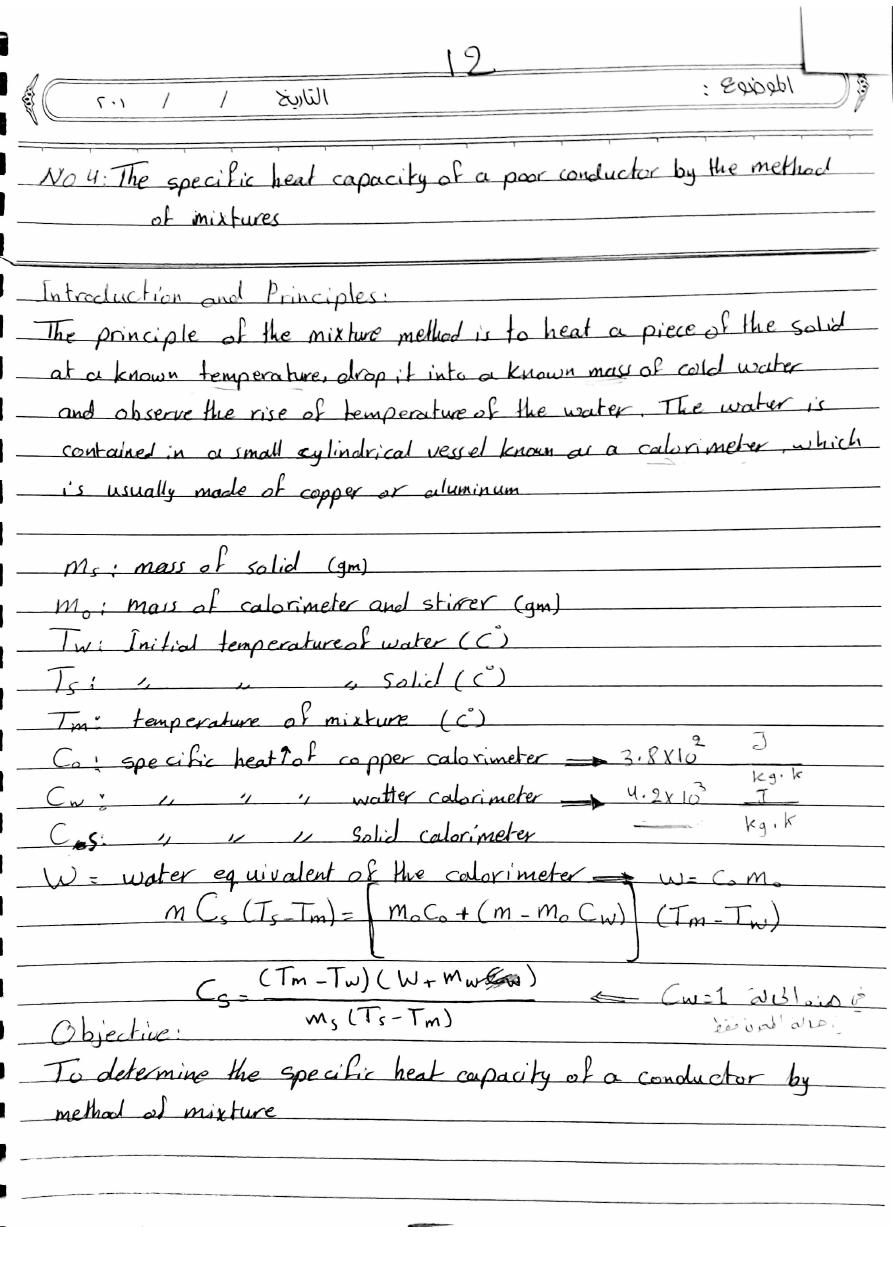 12
الموضوع :
التاريخ / / ٢٠١
No 4: The specific heat capacity of a poor conductor by the method
of mixtures
Introduction and Principles:
The principle of the mixture method is to heat a piece of the solid
at a known temperature, drop it into a known mass of cold water
and observe the rise of temperature of the water. The water is
contained in a small cylindrical vessel known as a calorimeter, which
is usually made of copper or aluminum
ms : mass of solid (gm)
mo : mass of calorimeter and stirrer (gm)
Tw: Initial temperature of water (C°)
Ts : " " " solid (C°)
Tm: temperature of mixture (C°)
Co : specific heat↑of copper calorimeter → 3.8X10² J/kg.k
Cw : " " " watter calorimeter → 4.2x10³ J/kg.k
Cs: " " " Solid calorimeter
W = water equivalent of the calorimeter → W= Co Mo
m Cs (Ts-Tm) = [moCo + (m - mo Cw)] (Tm - Tw)
Cs = (Tm - Tw) ( W + mw ) / ms (Ts - Tm) ⇐ Cw=1 في هذه الحالة
Objective:
To determine the specific heat capacity of a conductor by
method of mixture